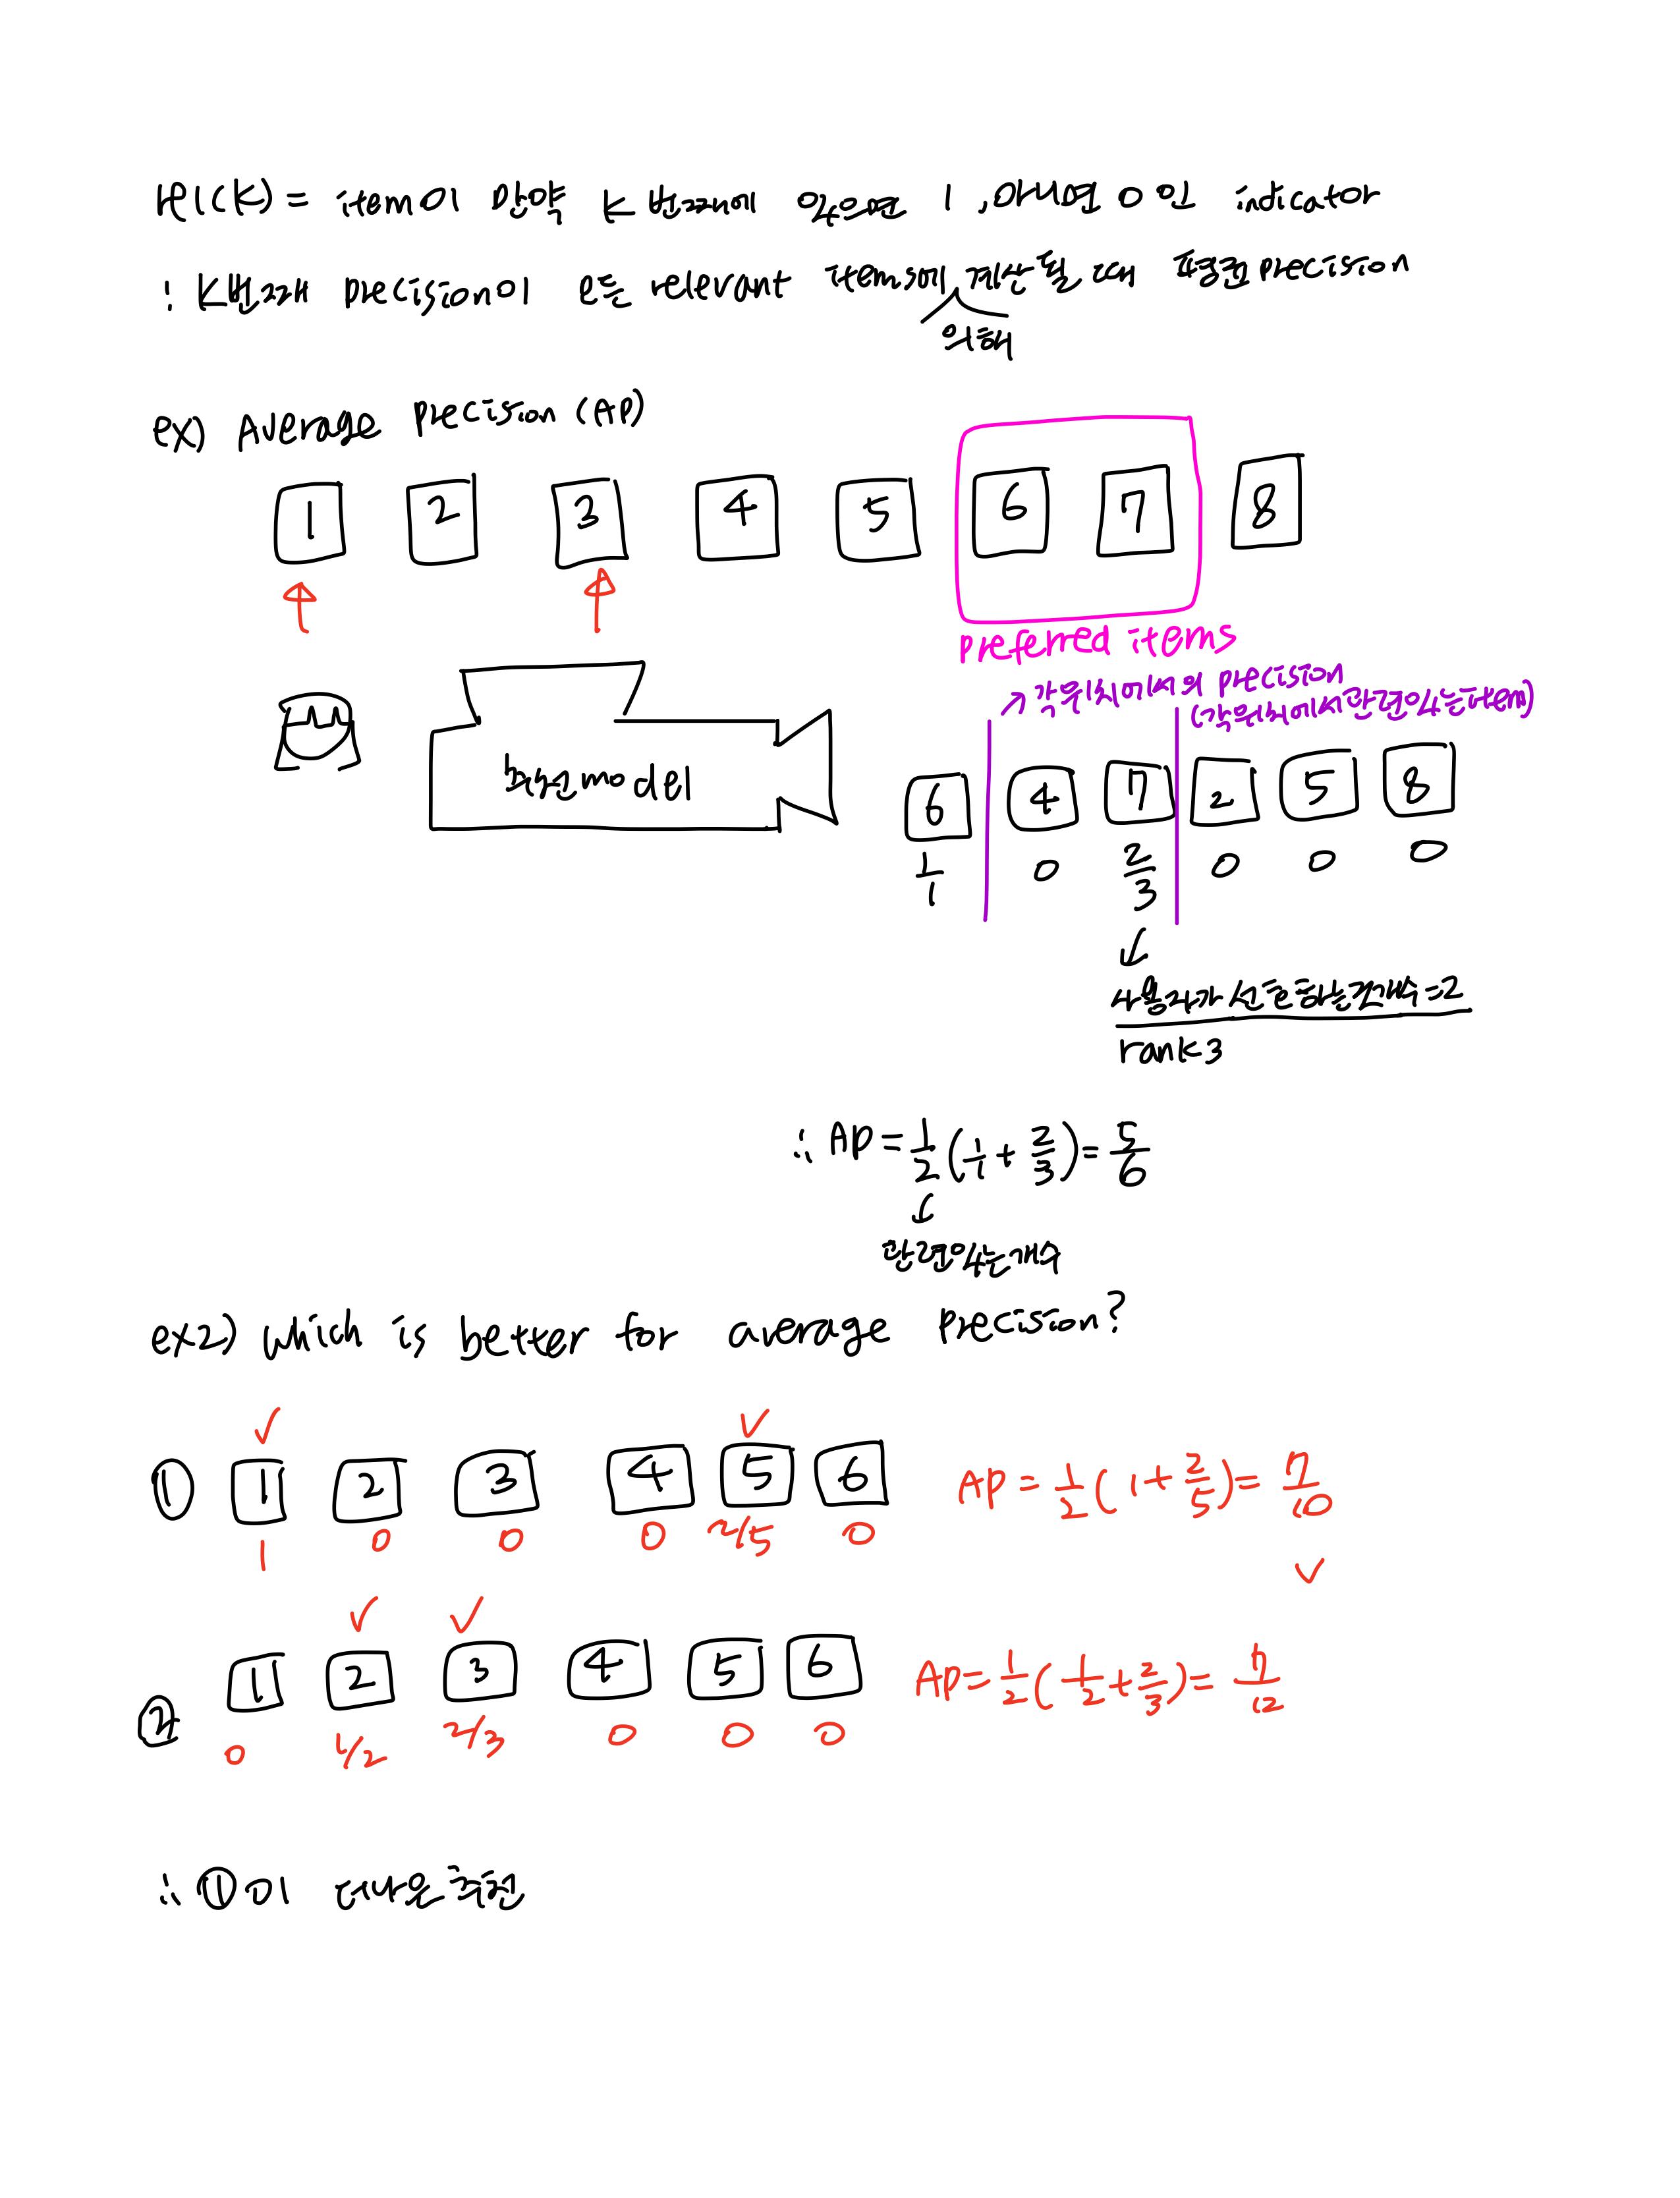 rel(k) = item이 만약 k 번째에 있으면 1, 아니면 0 인 indicator
: k번째 precision이 모든 relevant items에 계산될 때 평균 precision
의해
ex) Average precision (AP)
1 2 3 4 5 6 7 8
preferred items
↗ 각 위치에서의 precision
(각 위치에서 관련있는 item)
추천 model
6 4 7 2 5 8
1/1 0 2/3 0 0 0
사용자가 선호하는 것 개수 = 2
rank 3
∴ AP = 1/2 (1/1 + 2/3) = 5/6
관련있는 개수
ex2) which is better for average precision?
① 1 2 3 4 5 6 AP = 1/2 (1 + 2/5) = 7/10
1 0 0 0 2/5 0
② 1 2 3 4 5 6 AP = 1/2 (1/2 + 2/3) = 7/12
0 1/2 2/3 0 0 0
∴ ①이 더 나은 추천